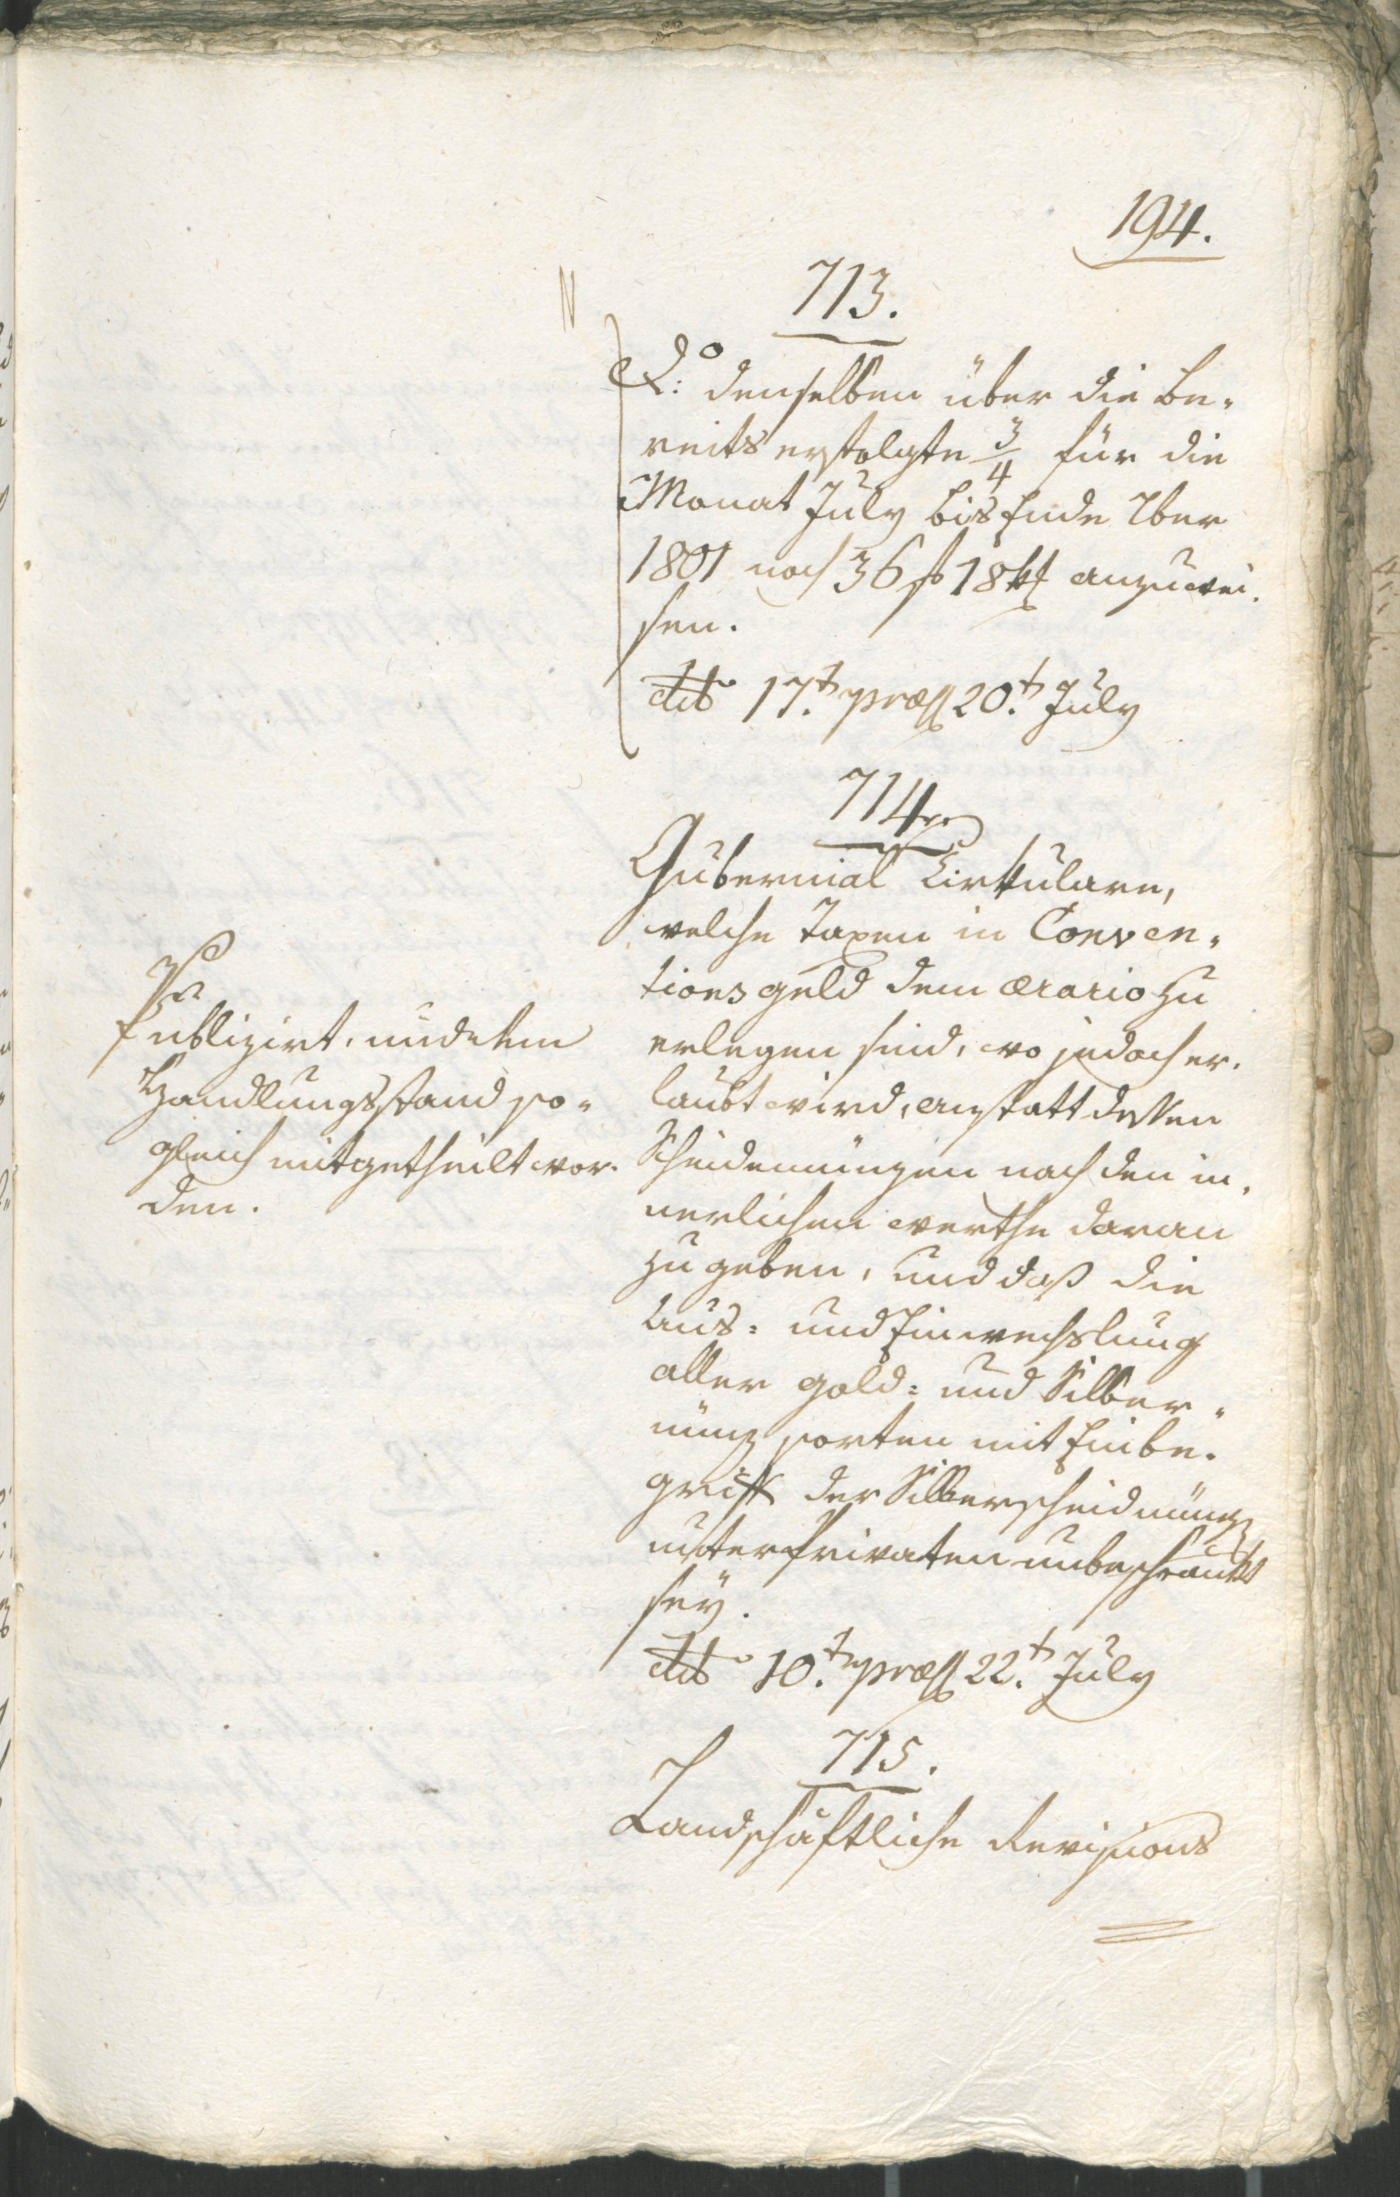 194.
713.
Do: denselben über die be-
reits erfolgte 3/4 für die
Monat July bis Ende 7ber
1801 noch 36 f 18 kr anzuwei-
sen.
dto 17.t præs 20.t July
714.
Gubernial Cirkulare,
welche Taxen in Conven-
tionsgeld dem ærario zu
erlegen sind, wo jedoch er-
laubt wird, anstatt dessen
Scheidemünzen nach den in-
nerlichen werthe daran
zu geben, und daß die
Aus- und Einwechslung
aller gold- und Silber-
münz sorten mit Einbe-
griff der Silberscheidmünz
unter Privaten unbeschränkt
sey.
dto 10.t præs 22.t July
Publizirt, und dem
Handlungsstand so-
gleich mitgetheilt wor-
den.
715.
Landschäftliche Revisions